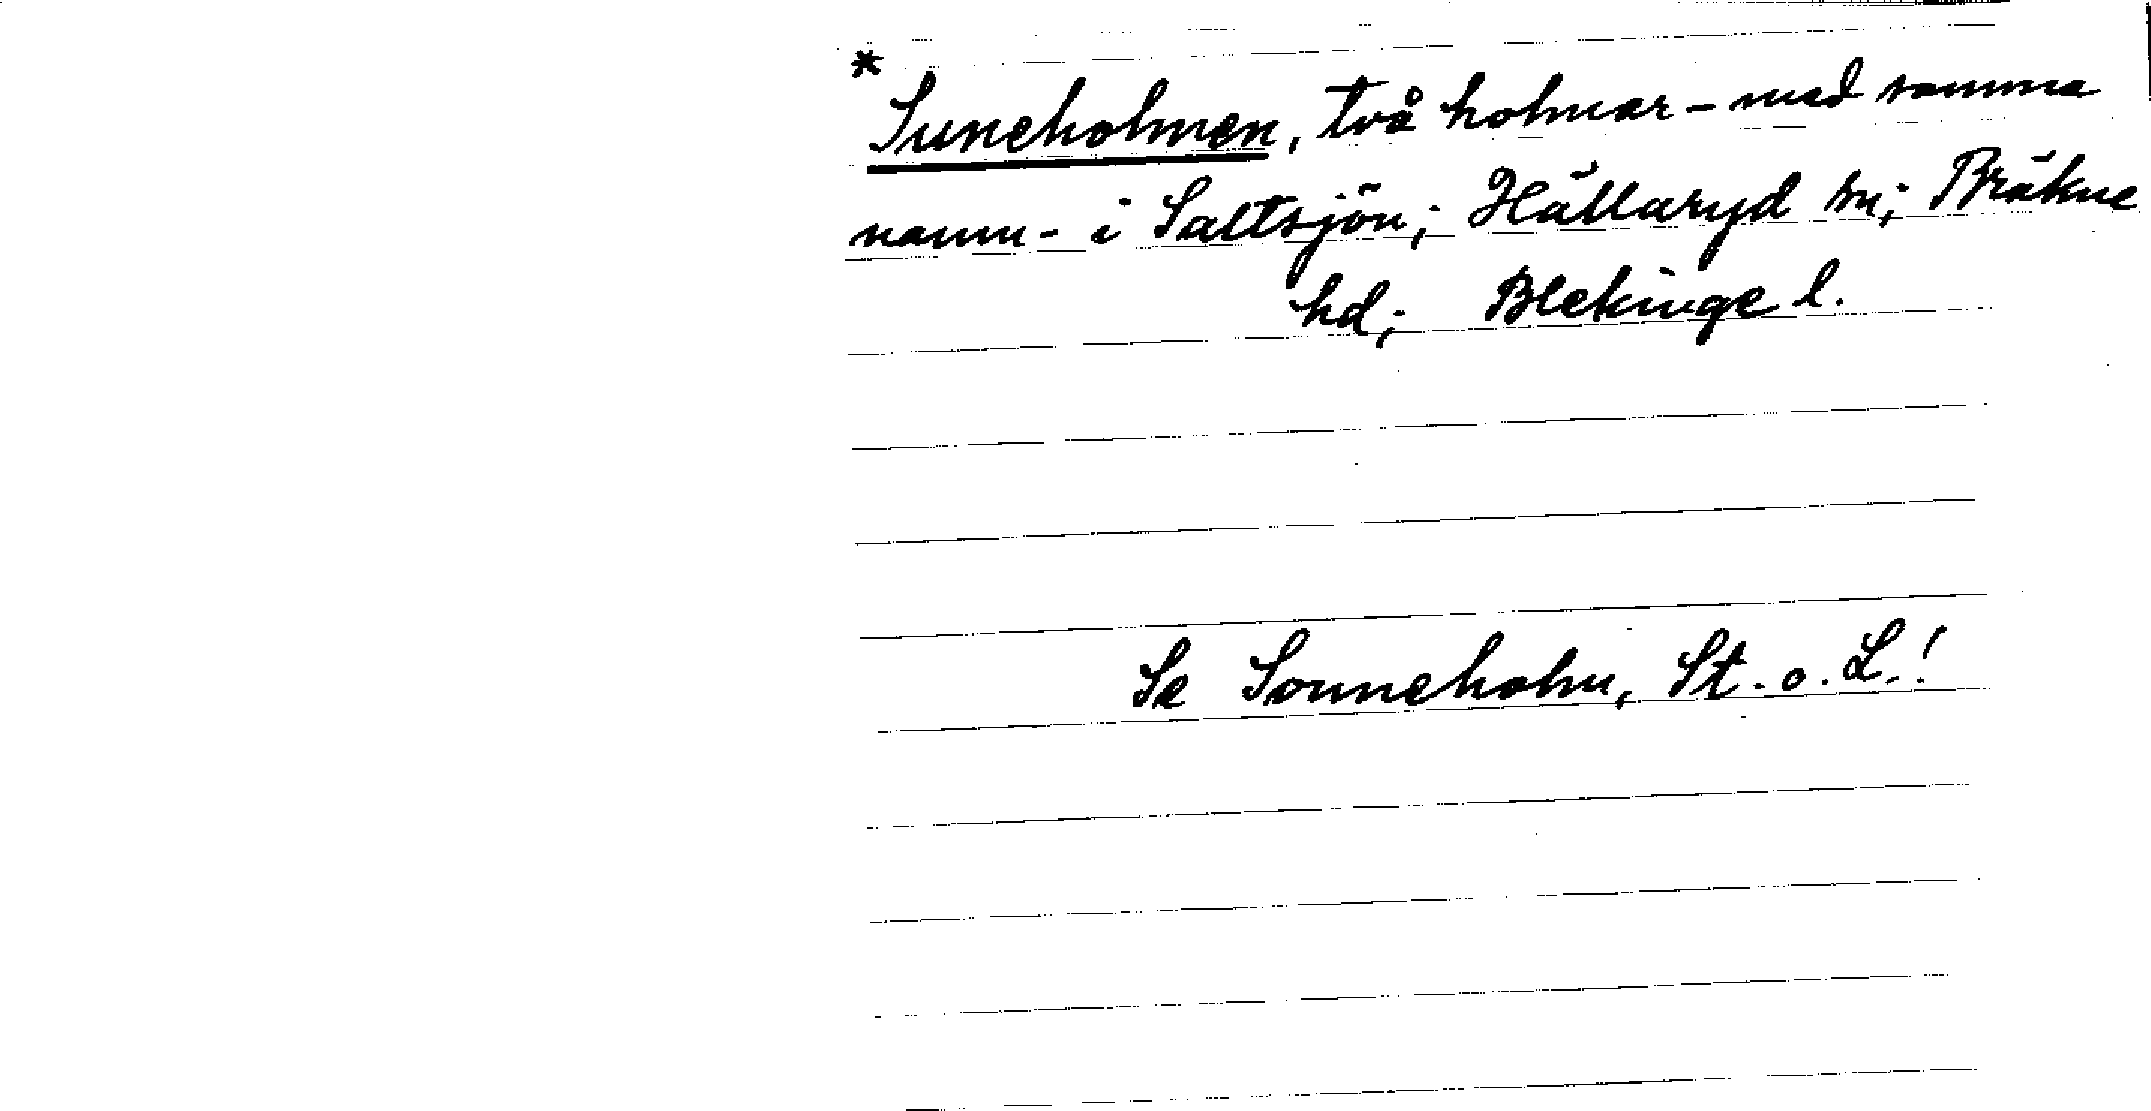 *
Suneholmen, två holmar - med samma
namn - i Saltsjön; Hällaryd sn; Bräkne
hd; Blekinge l.
Se Sonneholm, St. o. L.!